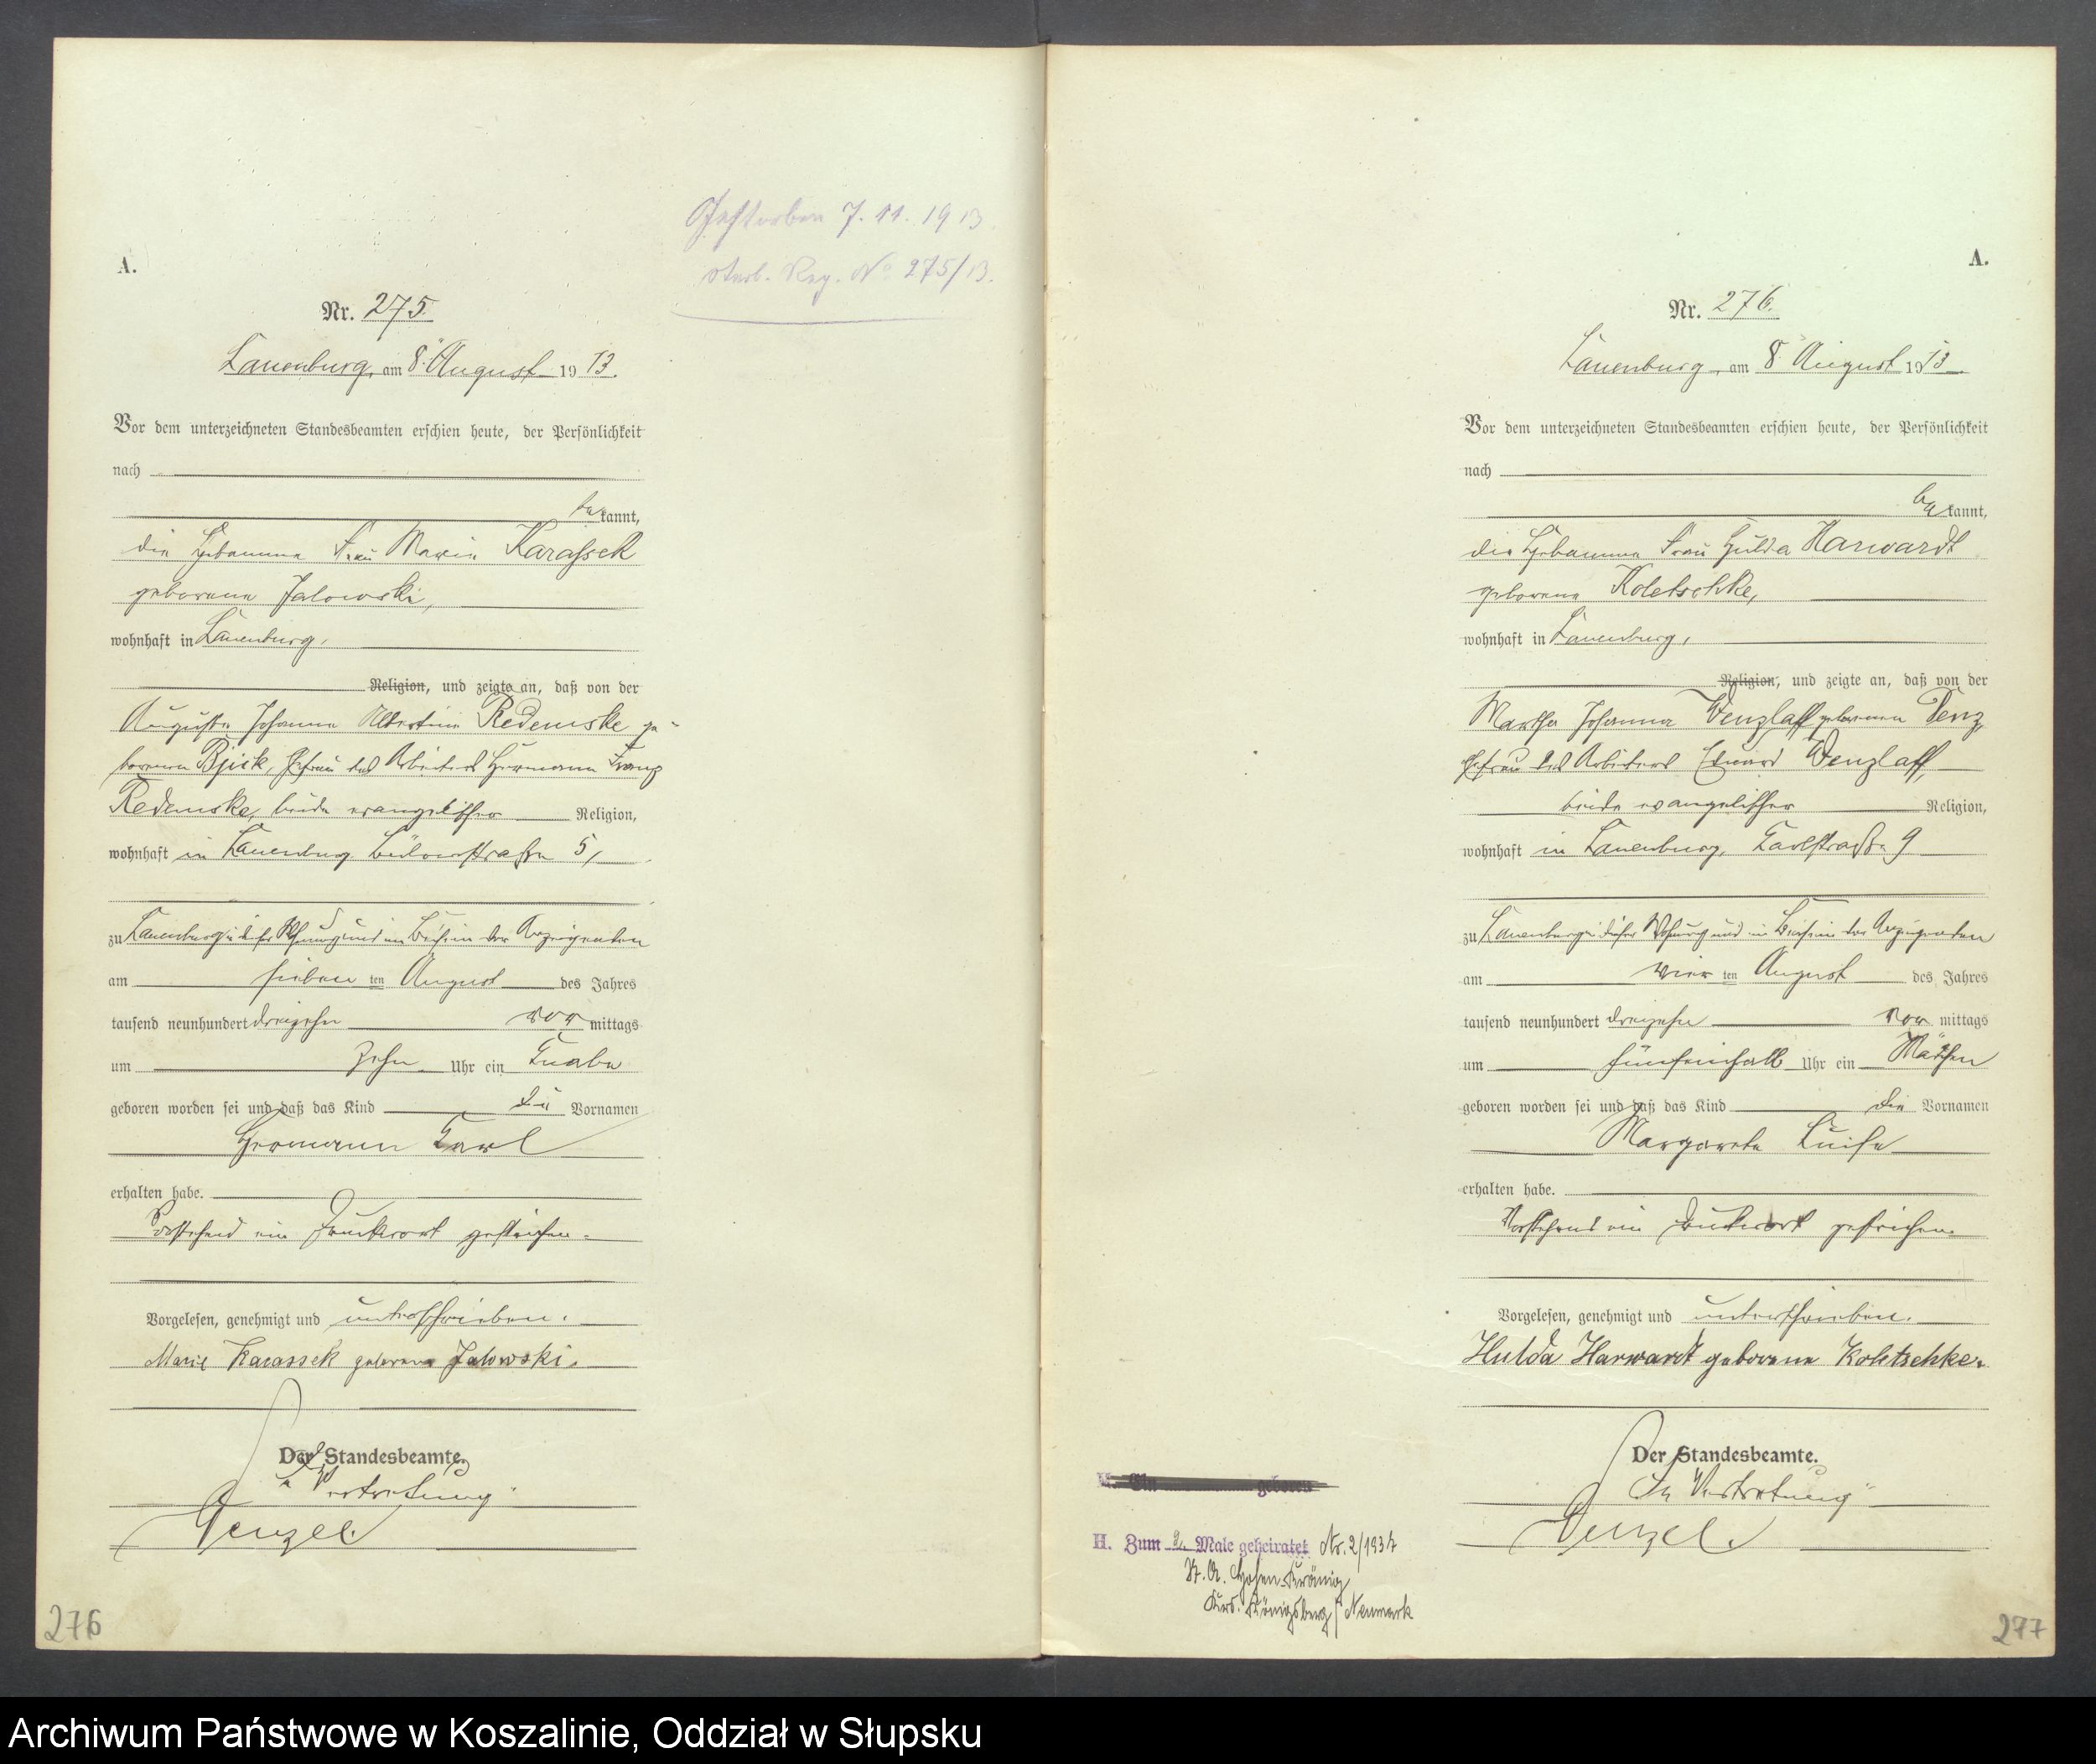 Gestorben 7. 11. 1913.
Sterb. Reg. No 275/13.
A.
Nr. 275.
Lauenburg, am 8. August 1913.
Vor dem unterzeichneten Standesbeamten erschien heute, der Persönlichkeit
nach
bekannt,
die Hebamme Frau Marie Karassek
geborene Jalowski,
wohnhaft in Lauenburg,
Religion, und zeigte an, daß von der
Auguste Johanna Albertine Redemske ge-
borenen, Ehefrau des Arbeiters Hermann Franz
Redemske, beide evangelischer Religion,
wohnhaft in Lauenburg Bülowstraße 5,
zu Lauenburg in dieser Wohnung und im Beisein der Anzeigenden
am siebenten August des Jahres
tausend neunhundert dreizehn vormittags
um zehn Uhr ein Knabe
geboren worden sei und daß das Kind die Vornamen
Hermann Karl
erhalten habe.
Vorstehend ein Druckwort gestrichen.
Vorgelesen, genehmigt und unterschrieben.
Marie Karassek geborene Jalowski.
Der Standesbeamte.
In Vertretung
Wenzel.
276
A.
Nr. 276.
Lauenburg, am 8. August 1913.
Vor dem unterzeichneten Standesbeamten erschien heute, der Persönlichkeit
nach
bekannt,
die Hebamme Frau Hulda Harwardt
geborene Koletschke,
wohnhaft in Lauenburg,
Religion, und zeigte an, daß von der
Martha Johanna Wenzlaff geborenen
Ehefrau des Arbeiters Eduard Wenzlaff,
beide evangelischer Religion,
wohnhaft in Lauenburg, Karlstraße 9
zu Lauenburg in dieser Wohnung und im Beisein der Anzeigenden
am vierten August des Jahres
tausend neunhundert dreizehn vormittags
um fünfeinhalb Uhr ein Mädchen
geboren worden sei und daß das Kind die Vornamen
Margarete Luise
erhalten habe.
Vorstehend ein Druckwort gestrichen.
Vorgelesen, genehmigt und unterschrieben.
Hulda Harwardt geborene Koletschke.
Der Standesbeamte.
In Vertretung
Wenzel.
Ein geboren
H. Zum 2. Male geheiratet Nr. 2/1937
St. A. Hohen-Kränig
Krs. Königsberg/Neumark
277
Archiwum Państwowe w Koszalinie, Oddział w Słupsku